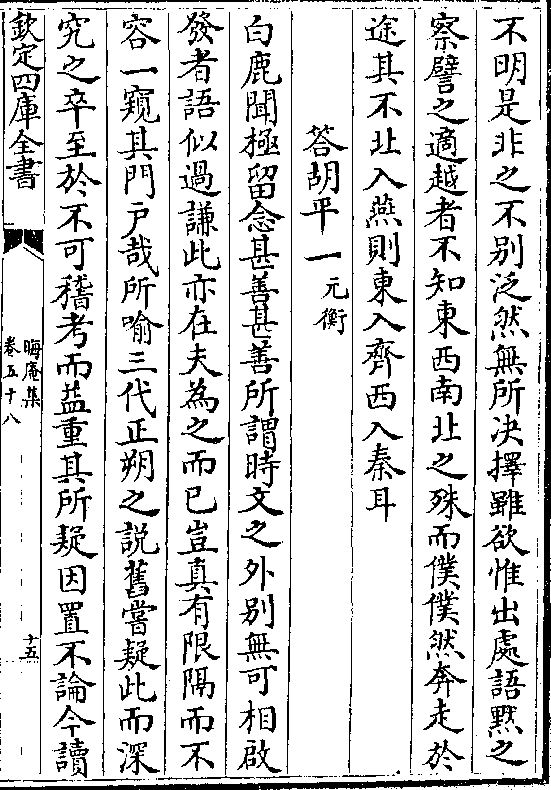 不明是非之不别泛然無所决擇雖欲惟出處語黙之
察譬之適越者不知東西南北之殊而僕僕然奔走於
途其不北入燕則東入齊西入秦耳
答胡平一元衡
白鹿聞極留念甚善甚善所謂時文之外别無可相啟
發者語似過謙此亦在夫為之而已豈真有限隔而不
容一窺其門戸哉所喻三代正朔之說舊嘗疑此而深
究之卒至於不可稽考而益重其所疑因置不論今讀
欽定四庫全書
晦庵集
卷五十八
十五